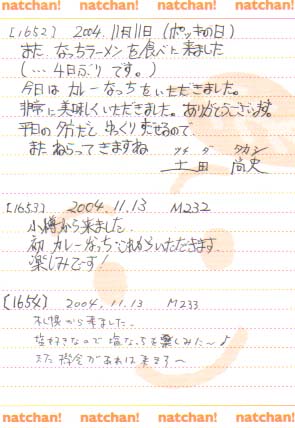 natchan! natchan! natchan! natchan!
[1652] 2004.11月11日(ポッキーの日)
また なっちラーメンを食べに来ました
(…4日ぶりです。)
今日は カレーなっちをいただきました。
非常に美味しくいただきました。ありがとうございます。
平日の夕方だと ゆっくりすごせるので、
またねらってきますね
ツチ ダ タカシ
土田 尚史
[1653] 2004.11.13 M232
小樽から来ました。
初カレーなっちこれからいただきます
楽しみです!
[1654] 2004.11.13 M233
札幌から来ました。
塩好きなので 塩なっちを楽しみた〜♪
また機会があれば来ます〜
natchan! natchan! natchan! natchan!